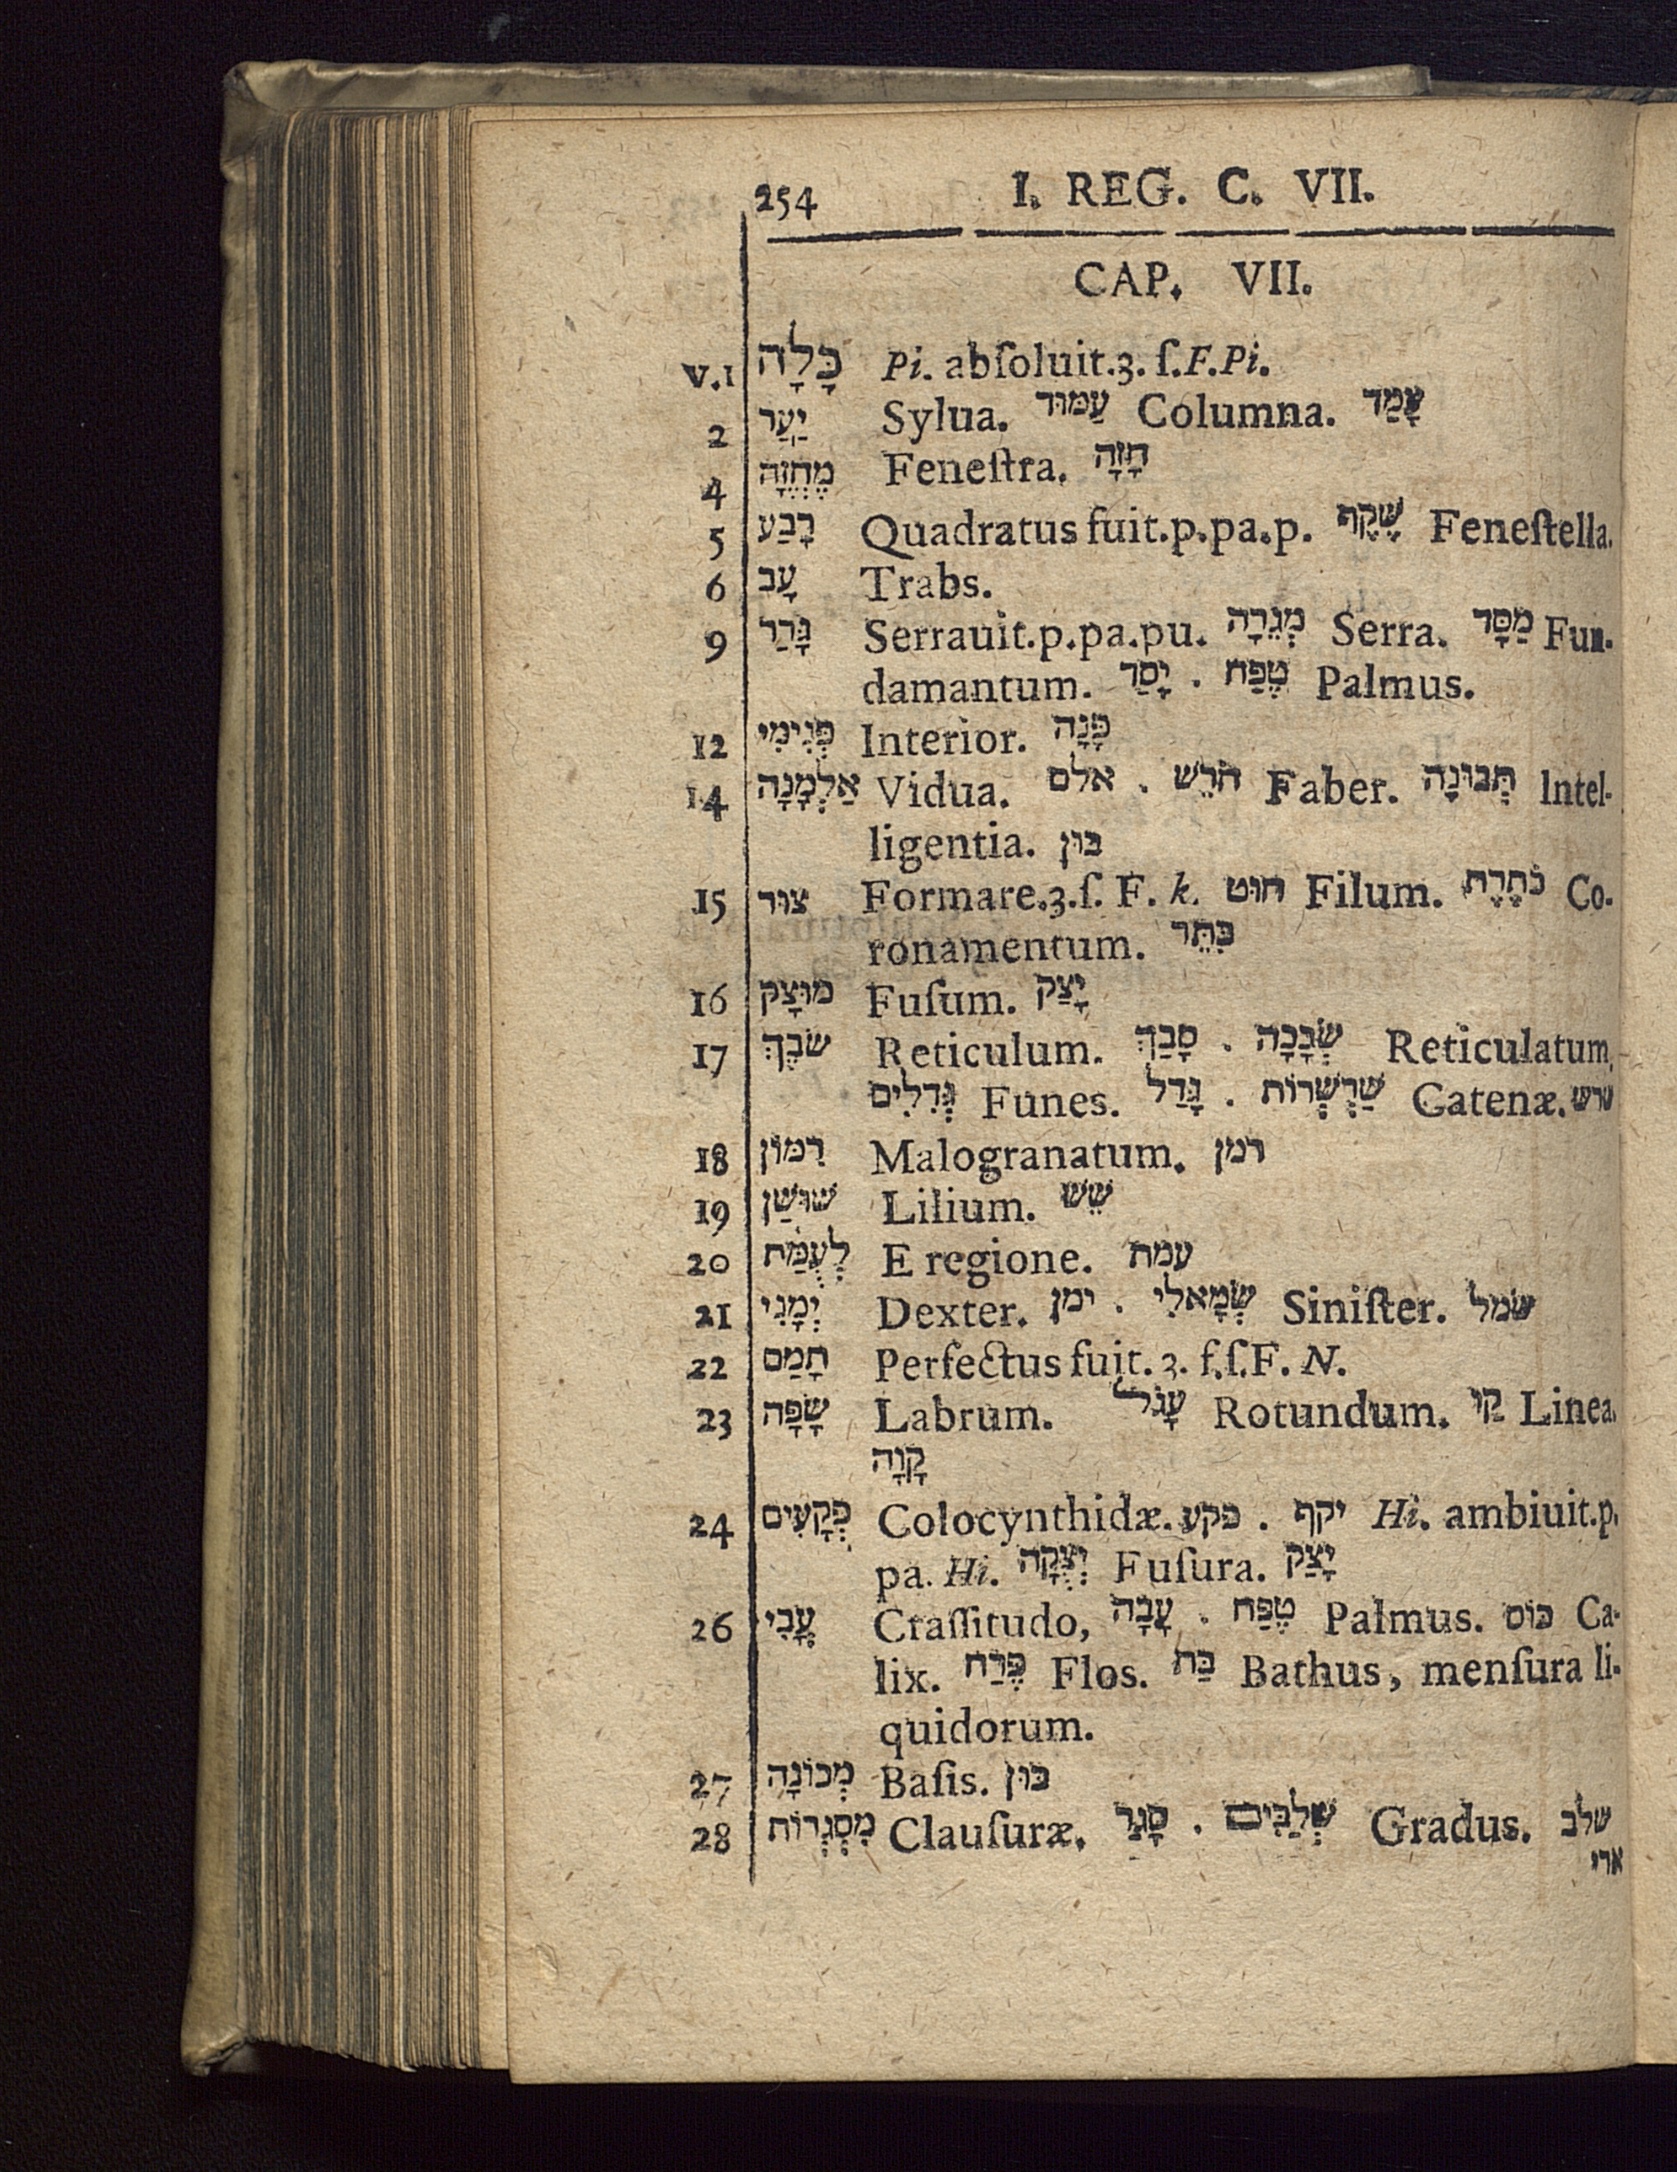 254 I. REG. C. VII.
CAP. VII.
V.1 כָּלָה Pi. abſoluit.3. ſ.F.Pi.
2 יַעַר Sylua. עַמּוּד Columna. עָמַד
4 מֶחֱזָה Feneſtra. חָזָה
5 רָבַע Quadratus fuit.p.pa.p. שָׁקֶף Feneſtella.
6 עָב Trabs.
9 גָּרַר Serrauit.p.pa.pu. מְגֵרָה Serra. מַסָּד Fun-
damantum. יָסַד . טֶפַח Palmus.
12 פְּנִימִי Interior. פָּנָה
14 אַלְמָנָה Vidua. אלם . חֹרֵשׁ Faber. תְּבוּנָה Intel-
ligentia. בּוּן
15 צוּר Formare.3.ſ. F. k. חוּט Filum. כֹּתֶרֶת Co-
ronamentum. כִּתֵּר
16 מוּצָק Fuſum. יָצַק
17 שֹׂבֶךְ Reticulum. סָבַךְ . שְׂבָכָה Reticulatum,
גְּדִלִים Funes. גָּדַל . שַׁרְשְׁרוֹת Catenæ. שרש
18 רִמּוֹן Malogranatum. רמן
19 שׁוּשַׁן Lilium. שֵׁשׁ
20 לְעֻמַּת E regione. עמת
21 יְמָנִי Dexter. ימן . שְׂמָאלִי Siniſter. שׂמל
22 תָּמַם Perfectus fuit. 3. f.ſ.F. N.
23 שָׂפָה Labrum. עָגֹל Rotundum. קַו Linea.
קָוָה
24 פְּקָעִים Colocynthidæ. פקע . יקף Hi. ambiuit.p.
pa. Hi. יְצֻקָה Fuſura. יָצַק
26 עֳבִי Craſſitudo, עָבָה . טֶפַח Palmus. כּוֹס Ca-
lix. פֶּרַח Flos. בַּת Bathus, menſura li-
quidorum.
27 מְכוֹנָה Baſis. כּוּן
28 מִסְגְּרוֹת Clauſuræ. סָגַר . שְׁלַבִּים Gradus. שלב
ארי